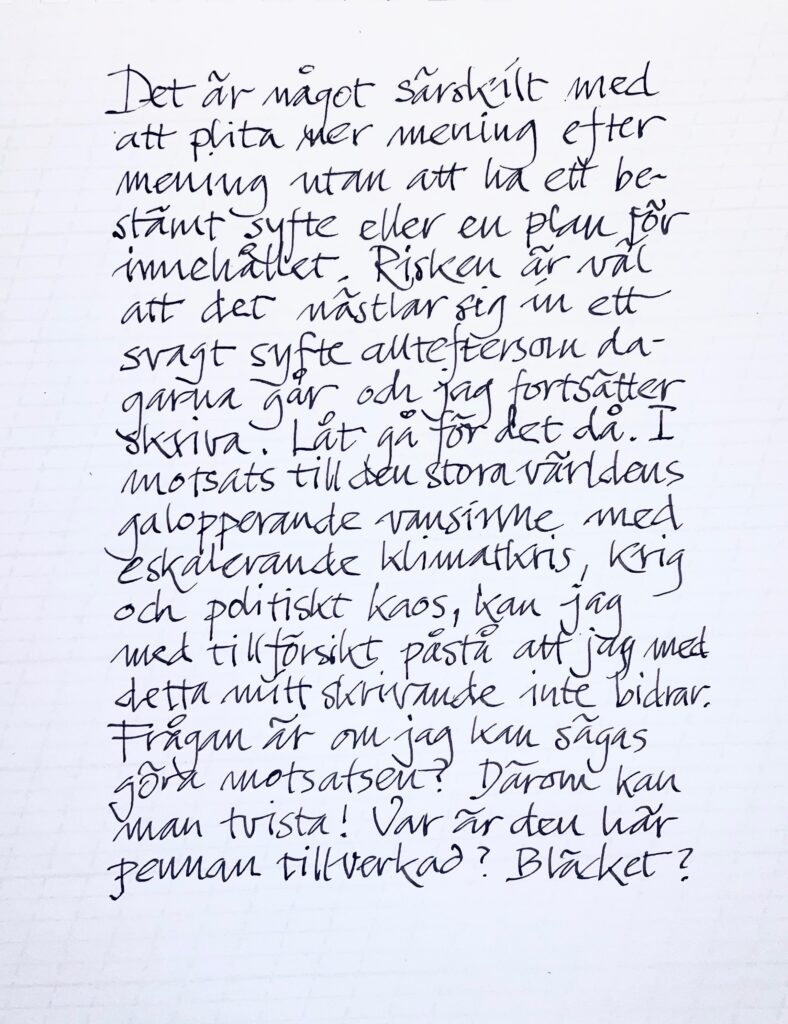 Det är något särskilt med
att plita ner mening efter
mening utan att ha ett be-
stämt syfte eller en plan för
innehållet. Risken är väl
att det nästlar sig in ett
svagt syfte allteftersom da-
garna går och jag fortsätter
skriva. Låt gå för det då. I
motsats till den stora världens
galopperande vansinne med
eskalerande klimatkris, krig
och politiskt kaos, kan jag
med tillförsikt påstå att jag med
detta mitt skrivande inte bidrar.
Frågan är om jag kan sägas
göra motsatsen? Därom kan
man tvista! Var är den här
pennan tillverkad? Bläcket?